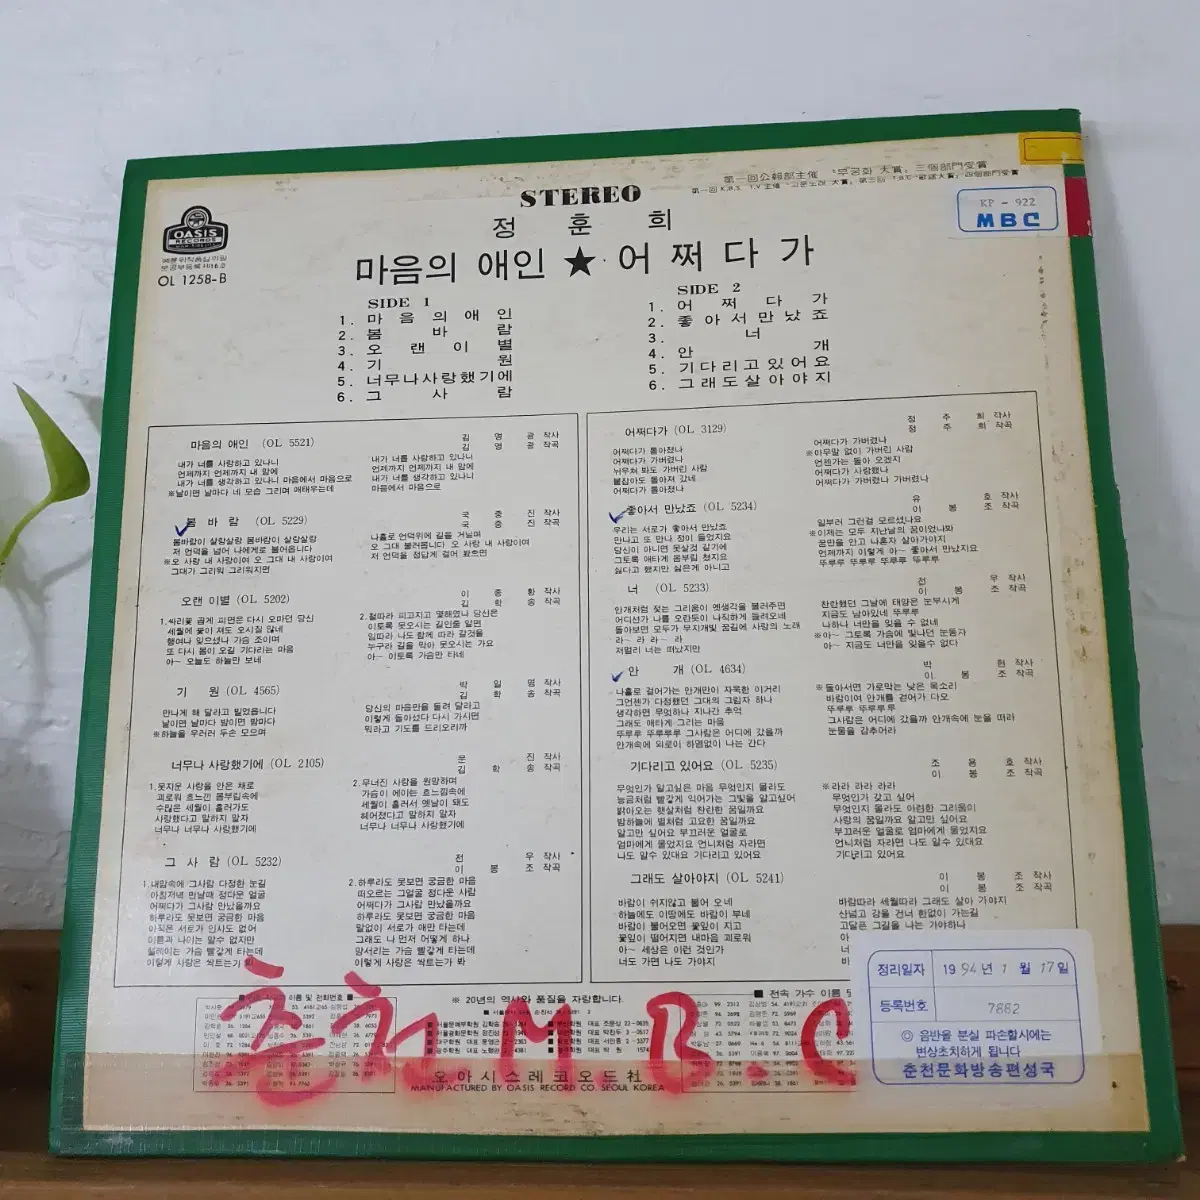 第一回公報部主催 "무궁화 大賞" 三個部門受賞
STEREO
정 훈 희
마음의 애인 ★ 어쩌다가
OASIS
RECORDS
OL 1258-B
KP - 922
MBC
SIDE 1
1. 마음의애인
2. 봄바람
3. 오랜이별
4. 기원
5. 너무나사랑했기에
6. 그사람
SIDE 2
1. 어쩌다가
2. 좋아서만났죠
3. 너
4. 안개
5. 기다리고있어요
6. 그래도살아야지
마음의 애인 (OL 5521)
김 영 광 작사
김 영 광 작곡
내가 너를 사랑하고 있나니
언제까지 언제까지 내 맘에
내가 너를 생각하고 있나니 마음에서 마음으로
※날이면 날마다 네 모습 그리며 애태우는데
내가 너를 사랑하고 있나니
언제까지 언제까지 내 맘에
내가 너를 생각하고 있나니
마음에서 마음으로
봄 바 람 (OL 5229)
국 중 진 작사
국 중 진 작곡
봄바람이 살랑살랑 봄바람이 살랑살랑
저 언덕을 넘어 나에게로 불어옵니다
※오 사랑 내 사랑이여 오 그대 내 사랑이여
그대가 그리워 그리워지면
나홀로 언덕위에 길을 거닐며
오 그대 불러봅니다 오 사랑 내 사랑이여
저 언덕을 정답게 걸어 봤으면
오랜 이별 (OL 5202)
이 종 황 작사
김 학 송 작곡
1.싸리꽃 곱게 피면은 다시 오마던 당신
세월에 꽃이 져도 오시질 않네
행여나 잊으셨나 가슴 조이며
또 다시 봄이 오길 기다리는 마음
아~ 오늘도 하늘만 보네
2.철따라 피고지고 몇해였나 당신은
이토록 못오시는 길인줄 알면
임따라 나도 함께 따라 갈것을
누구라 길을 막아 못오시는 가요
아~ 이토록 가슴만 타네
기 원 (OL 4565)
박 일 명 작사
김 학 송 작곡
만나게 해 달라고 빌었읍니다
날이면 날마다 밤이면 밤마다
※하늘을 우러러 두손 모으며
당신의 마음만을 돌려 달라고
이렇게 돌아섰다 다시 가시면
뭐라고 기도를 드리오리까
너무나 사랑했기에 (OL 2105)
운 진 작사
김 학 송 작곡
1.못지운 사랑을 안은 채로
괴로워 흐느낀 몸부림속에
수많은 세월이 흘러가도
사랑했다고 말하지 말자
너무나 너무나 사랑했기에
2.무너진 사랑을 원망하며
가슴이 에이는 흐느낌속에
세월이 흘러서 옛날이 돼도
헤어졌다고 말하지 말자
너무나 너무나 사랑했기에
그 사 람 (OL 5232)
전 우 작사
이 봉 조 작곡
1.내맘속에 그사람 다정한 눈길
아침저녁 만날때 정다운 얼굴
어쩌다가 그사람 만났을까요
하루라도 못보면 궁금한 마음
아직은 서로가 인사도 없어
이름과 나이는 알수 없지만
설레이는 가슴 빨갛게 타는데
이렇게 사랑은 싹트는가 봐
2.하루라도 못보면 궁금한 마음
떠오르는 그얼굴 정다운 사람
어쩌다가 그사람 만났을까요
하루라도 못보면 궁금한 마음
말없이 서로가 애만 타는데
그래도 나 먼저 어떻게 하나
망서리는 가슴 빨갛게 타는데
이렇게 사랑은 싹트는가 봐
어쩌다가 (OL 3129)
정 주 희 작사
정 주 희 작곡
어쩌다가 돌아졌나
어쩌다가 가버렸나
뉘우쳐 봐도 가버린 사람
붙잡아도 돌아져 갔네
어쩌다가 돌아졌나
어쩌다가 가버렸나
※아무말 없이 가버린 사람
언젠가는 돌아 오겠지
어쩌다가 사랑했나
어쩌다가 가버렸나 가버렸나
좋아서 만났죠 (OL 5234)
유 호 작사
이 봉 조 작곡
우리는 서로가 좋아서 만났죠
만나고 또 만나 정이 들었지요
당신이 아니면 못살것 같기에
그토록 애타게 몸부림 쳤지요
싫다고 했지만 싫은게 아니고
일부러 그런걸 모르셨나요
※이제는 모두 지난날의 꿈이었나봐
꿈만을 안고 나혼자 살아가야지
언제까지 이렇게 아~ 좋아서 만났지요
뚜루루 뚜루루 뚜루루 뚜루루
너 (OL 5233)
전 우 작사
이 봉 조 작곡
안개처럼 젖는 그리움이 옛생각을 불러주면
어디선가 나를 오란듯이 나직하게 들려오네
돌아보면 모두가 무지개빛 꿈길에 사랑의 노래
라~ 라~ 라~ 라
저멀리 너는 떠났지만
찬란했던 그날에 태양은 눈부시게
지금도 남아있네 뚜루루
나하나 너만을 잊을 수 없네
※아~ 그토록 가슴에 빛나던 눈동자
아~ 지금도 너만을 잊을수 없다
안 개 (OL 4634)
박 현 작사
이 봉 조 작곡
나홀로 걸어가는 안개만이 자욱한 이거리
그언젠가 다정했던 그대의 그림자 하나
생각하면 무엇하나 지나간 추억
그래도 애타게 그리는 마음
뚜루루 뚜루루루 그사람은 어디에 갔을까
안개속에 외로이 하염없이 나는 간다
※돌아서면 가로막는 낮은 목소리
바람이여 안개를 걷어가 다오
뚜루루 뚜루루루
그사람은 어디에 갔을까 안개속에 눈을 떠라
눈물을 감추어라
기다리고 있어요 (OL 5235)
조 용 호 작사
이 봉 조 작곡
무엇인가 알고싶은 마음 무엇인지 몰라도
능금처럼 빨갛게 익어가는 그빛을 알고싶어
밝아오는 햇살처럼 찬란한 꿈일까요
밤하늘에 별처럼 고요한 꿈일까요
알고만 싶어요 부끄러운 얼굴로
엄마에게 물었지요 언니처럼 자라면
나도 알수 있대요 기다리고 있어요
※라라 라라 라라
무엇인가 갖고 싶어
무엇인지 몰라도 아련한 그리움이
사랑의 꿈일까요 알고만 싶어요
부끄러운 얼굴로 엄마에게 물었지요
언니처럼 자라면 나도 알수 있대요
기다리고 있어요
그래도 살아야지 (OL 5241)
이 봉 조 작사
이 봉 조 작곡
바람이 쉬지않고 불어 오네
하늘에도 이땅에도 바람이 부네
바람이 불어오면 꽃잎이 지고
꽃잎이 떨어지면 내마음 괴로워
아~ 세상은 이런 것인가
너도 가면 나도 가야지
바람따라 세월따라 그래도 살아 가야지
산넘고 강을 건너 한없이 가는길
고달픈 그길을 나는 가야하나
정리일자 1994년 1월 17일
등록번호 7882
◎ 음반을 분실 파손할시에는
변상조치하게 됩니다
춘천문화방송편성국
※ 20년의 역사와 품질을 자랑합니다.
■ 전속 가수 이름 및
춘천 M.B.C
오아시스레코오드社
MANUFACTURED BY OASIS RECORD CO. SEOUL KOREA